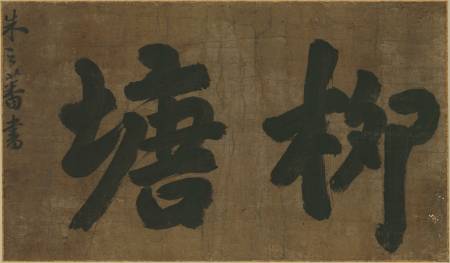 柳塘
朱之蕃書